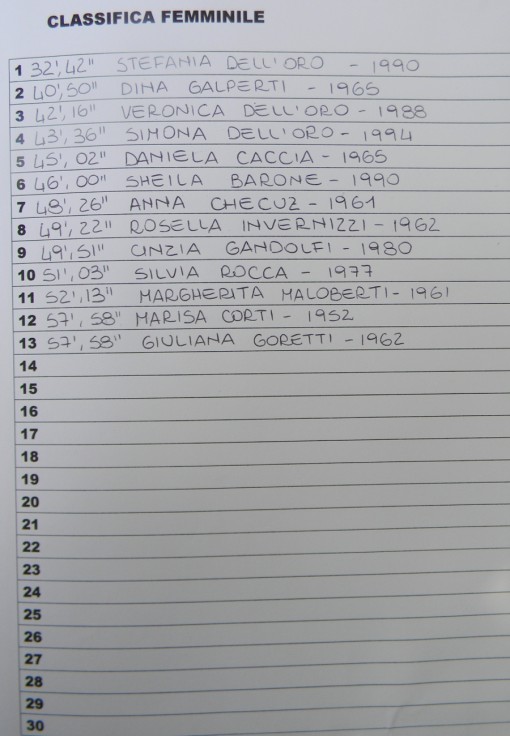 CLASSIFICA FEMMINILE
1 32',42" STEFANIA DELL'ORO - 1990
2 40',50" DINA GALPERTI - 1965
3 42',16" VERONICA DELL'ORO - 1988
4 43',36" SIMONA DELL'ORO - 1994
5 45',02" DANIELA CACCIA - 1965
6 46',00" SHEILA BARONE - 1990
7 48',26" ANNA CHECUZ - 1961
8 49',22" ROSELLA INVERNIZZI - 1962
9 49',51" CINZIA GANDOLFI - 1980
10 51',03" SILVIA ROCCA - 1977
11 52',13" MARGHERITA MALOBERTI - 1961
12 57',58" MARISA CORTI - 1952
13 57',58" GIULIANA GORETTI - 1962
14
15
16
17
18
19
20
21
22
23
24
25
26
27
28
29
30